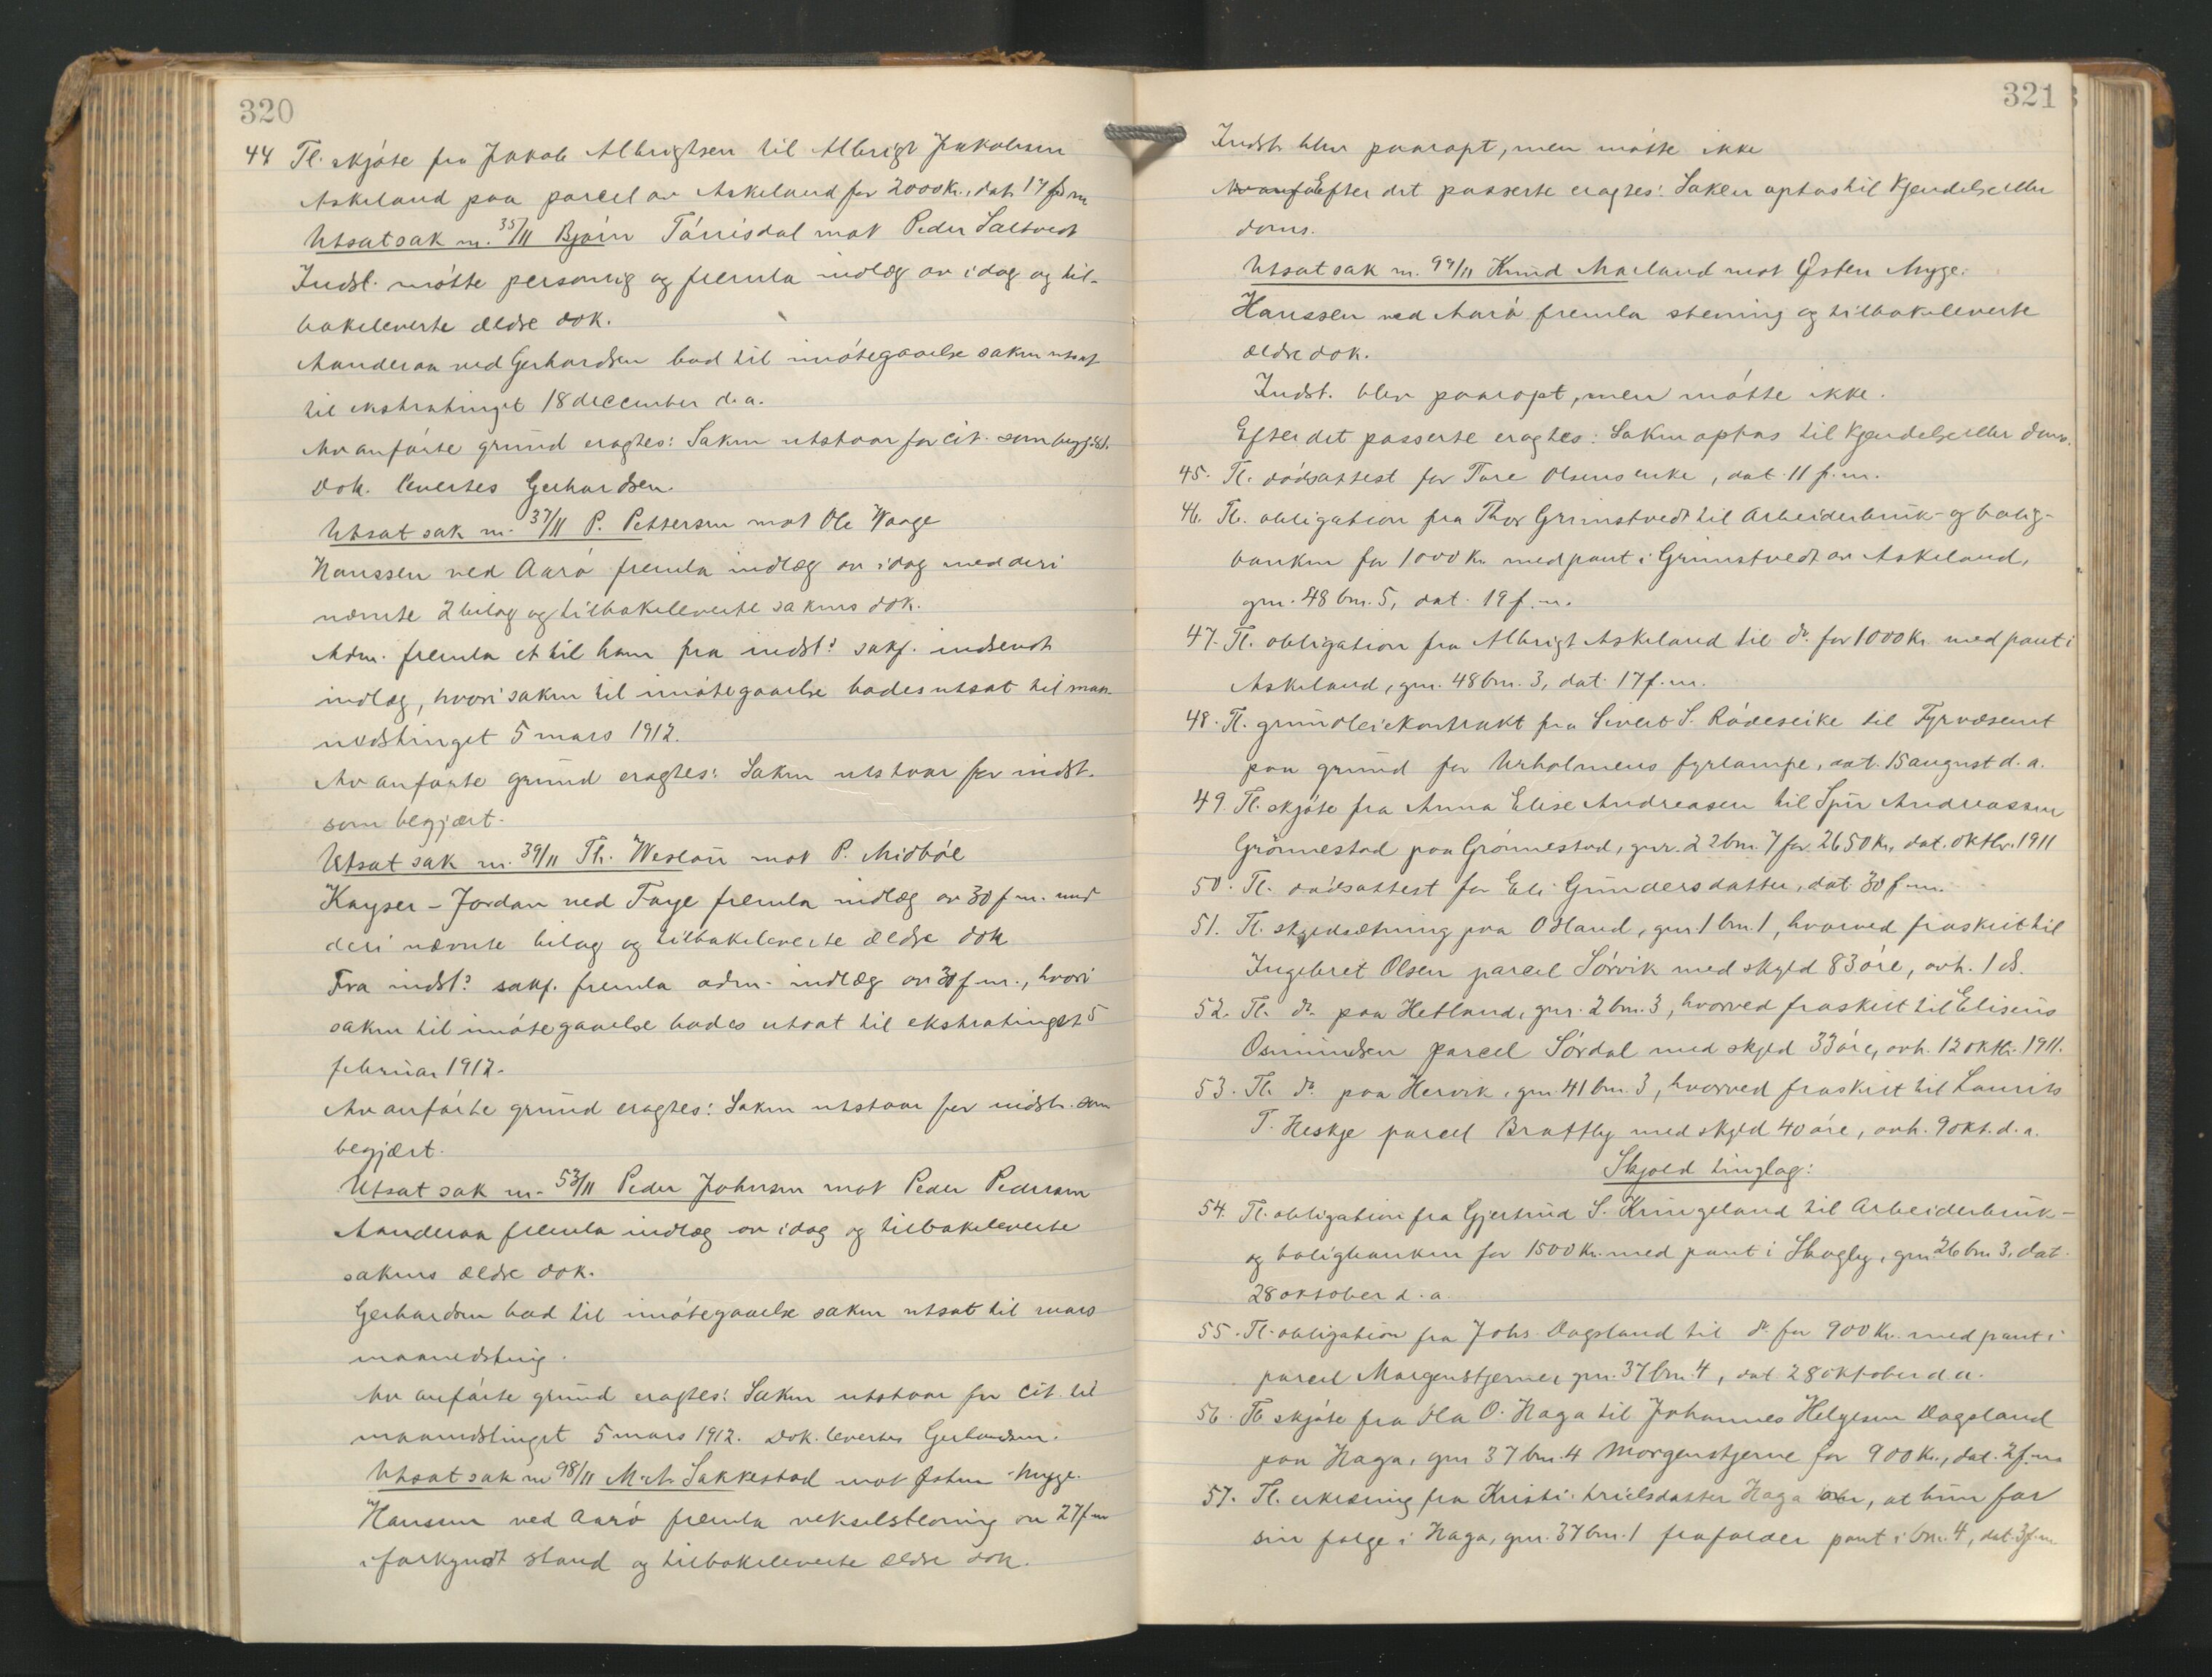 320
44 Tl. skjøte fra Jakob Albrigtsen til Albrigt Jakobsen
Askeland paa parcel av Askeland for 2000 Kr., dat. 17 f.m.
Utsat sak nr. 35/11 Bjørn Tørrisdal mot Peder Saltvedt
Indst. møtte personlig og fremla indlæg av idag og til-
bakeleverte ældre dok.
Aanderaa ved Gerhardsen bad til imøtegaaelse saken utsat
til ekstratinget 18 december d.a.
Av anførte grund eragtes: Saken utstaar for cit. som begjært.
Dok. levertes Gerhardsen.
Utsat sak nr. 37/11 P. Pettersen mot Ole Waage
Hanssen ved Aarø fremla indlæg av idag med deri
nævnte 2 bilag og tilbakeleverte sakens dok.
Adm. fremla et til ham fra indst.s sakf. indsendt
indlæg, hvori saken til imøtegaaelse bades utsat til maa-
nedstinget 5 mars 1912.
Av anførte grund eragtes: Saken utstaar for indst.
som begjært.
Utsat sak nr. 39/11 Th. Weston mot P. Midbøe
Kayser-Jordan ved Faye fremla indlæg av 30 f.m. med
deri nævnte bilag og tilbakeleverte ældre dok.
Fra indst.s sakf. fremla adm. indlæg av 30 f.m., hvori
saken til imøtegaaelse bades utsat til ekstratinget 5
februar 1912.
Av anførte grund eragtes: Saken utstaar for indst. som
begjært.
Utsat sak nr. 53/11 Peder Johnsen mot Peder Pedersen
Aanderaa fremla indlæg av idag og tilbakeleverte
sakens ældre dok.
Gerhardsen bad til imøtegaaelse saken utsat til mars
maanedsting.
Av anførte grund eragtes: Saken utstaar for cit. til
maanedstinget 5 mars 1912. Dok. levertes Gerhardsen.
Utsat sak nr 98/11 M. A. Sakkestad mot Østen Mygge.
Hanssen ved Aarø fremla vekselstevning av 27 f.m
i forkyndt stand og tilbakeleverte ældre dok.
321
Indst. blev paaropt, men møtte ikke
Efter det passerte eragtes: Saken optas til Kjendelse eller
doms.
Utsat sak nr. 99/11 Knud Maeland mot Østen Mygge.
Hanssen ved Aarø fremla stevning og tilbakeleverte
ældre dok.
Indst. blev paaropt, men møtte ikke.
Efter det passerte eragtes: Saken optas til Kjendelse eller dom.
45. Tl. dødsattest for Tore Olsens enke, dat. 11 f.m.
46. Tl. obligation fra Thor Grimstvedt til Arbeiderbruk- og bolig-
banken for 1000 Kr. med pant i Grimstvedt av Askeland,
gnr. 48 bnr. 5, dat. 19 f.m.
47. Tl. obligation fra Albrigt Askeland til do. for 1000 Kr. med pant i
Askeland, gnr. 48 bnr. 3, dat. 17 f.m.
48. Tl. grundleiekontrakt fra Sivert S. Rødeseike til Fyrvæsenet
paa grund for Urholmens fyrlampe, dat. 15 august d.a.
49. Tl. skjøte fra Anna Elise Andreasen til Andreassen
Grønnestad paa Grønnestad, gnr. 22 bnr. 7 for 2650 Kr., dat. oktbr. 1911
50. Tl. dødsattest for Eli Gundersdatter, dat. 30 f.m.
51. Tl. skyldsætning paa Odland, gnr. 1 bnr. 1, hvorved fraskilt til
Ingebret Olsen parcel Sørvik med skyld 83 øre, avh. 1 ds.
52. Tl. do. paa Hetland, gnr. 2 bnr. 3, hvorved fraskilt til Eliseus
Osmundsen parcel Sørdal med skyld 33 øre, avh. 12 oktbr. 1911.
53. Tl. do. paa Hervik, gnr. 41 bnr. 3, hvorved fraskilt til Laurits
T. Heskje parcel Brattly med skyld 40 øre, avh. 9 okt. d.a.
Skjold tinglag:
54. Tl. obligation fra Gjertrud S. Kringeland til Arbeiderbruk-
og boligbanken for 1500 Kr. med pant i Skogly, gnr. 26 bnr 3, dat.
28 oktober d.a.
55. Tl. obligation fra Johs. Dagsland til do. for 900 Kr. med pant i
parcel Morgenstjernen gnr. 37 bnr. 4, dat. 28 oktober d.a.
56. Tl. skjøte fra Ola O. Haga til Johannes Helgesen Dagsland
paa Haga, gnr 37 bnr. 4 Morgenstjerne for 900 Kr., dat. 2 f.m
57. Tl. erklæring fra Kristi datter Haga at hun for
sin følge i Haga, gnr. 37 bnr. 1 frafalder pant i bnr. 4, dat. 3 f.m